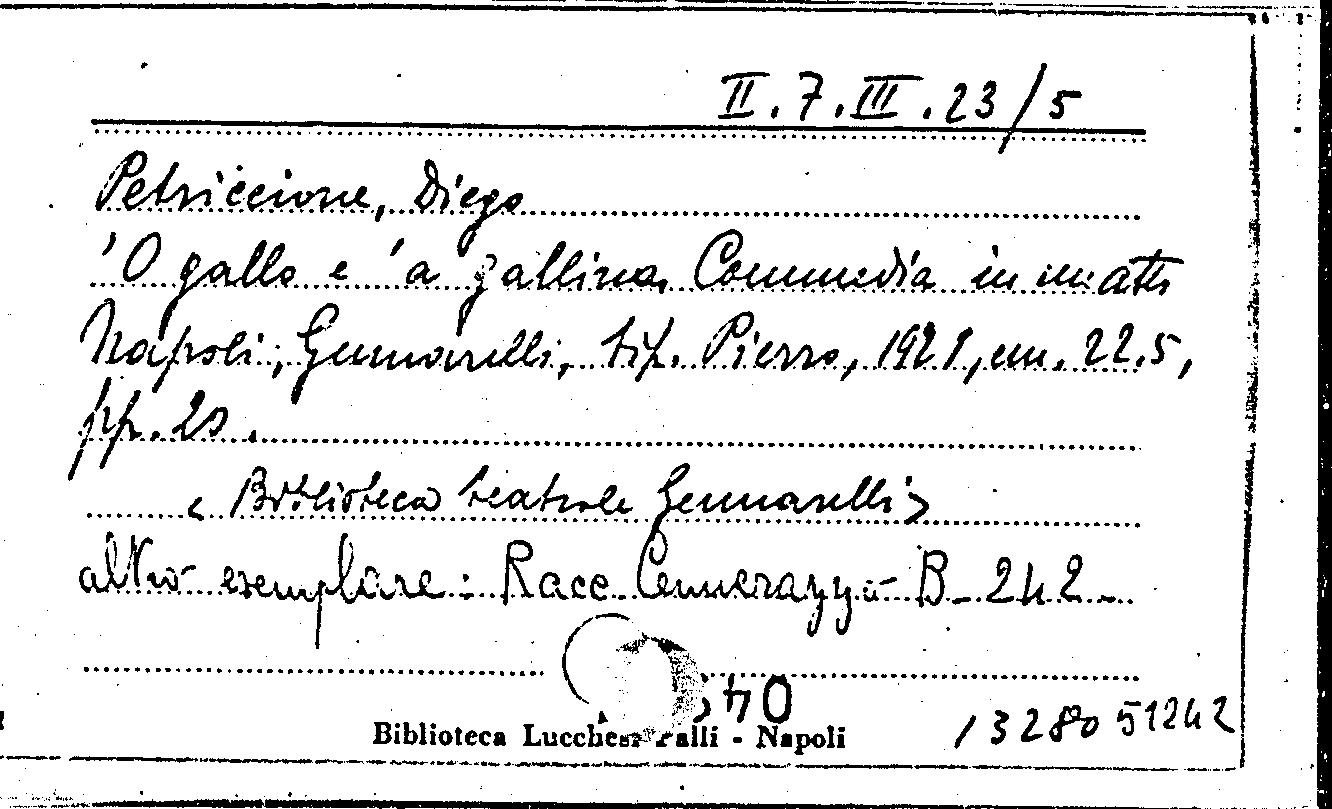 II.7.III.23/5
Petriccione, Diego
'O gallo e 'a gallina. Commedia in un atto
Napoli, Gennarelli, tip. Pierro, 1921, cm. 22.5,
pp. 20.
< Biblioteca teatrale Gennarelli >
altro esemplare: Racc. Cennerazzo B-242
Biblioteca Lucchesi Palli - Napoli
1328051242